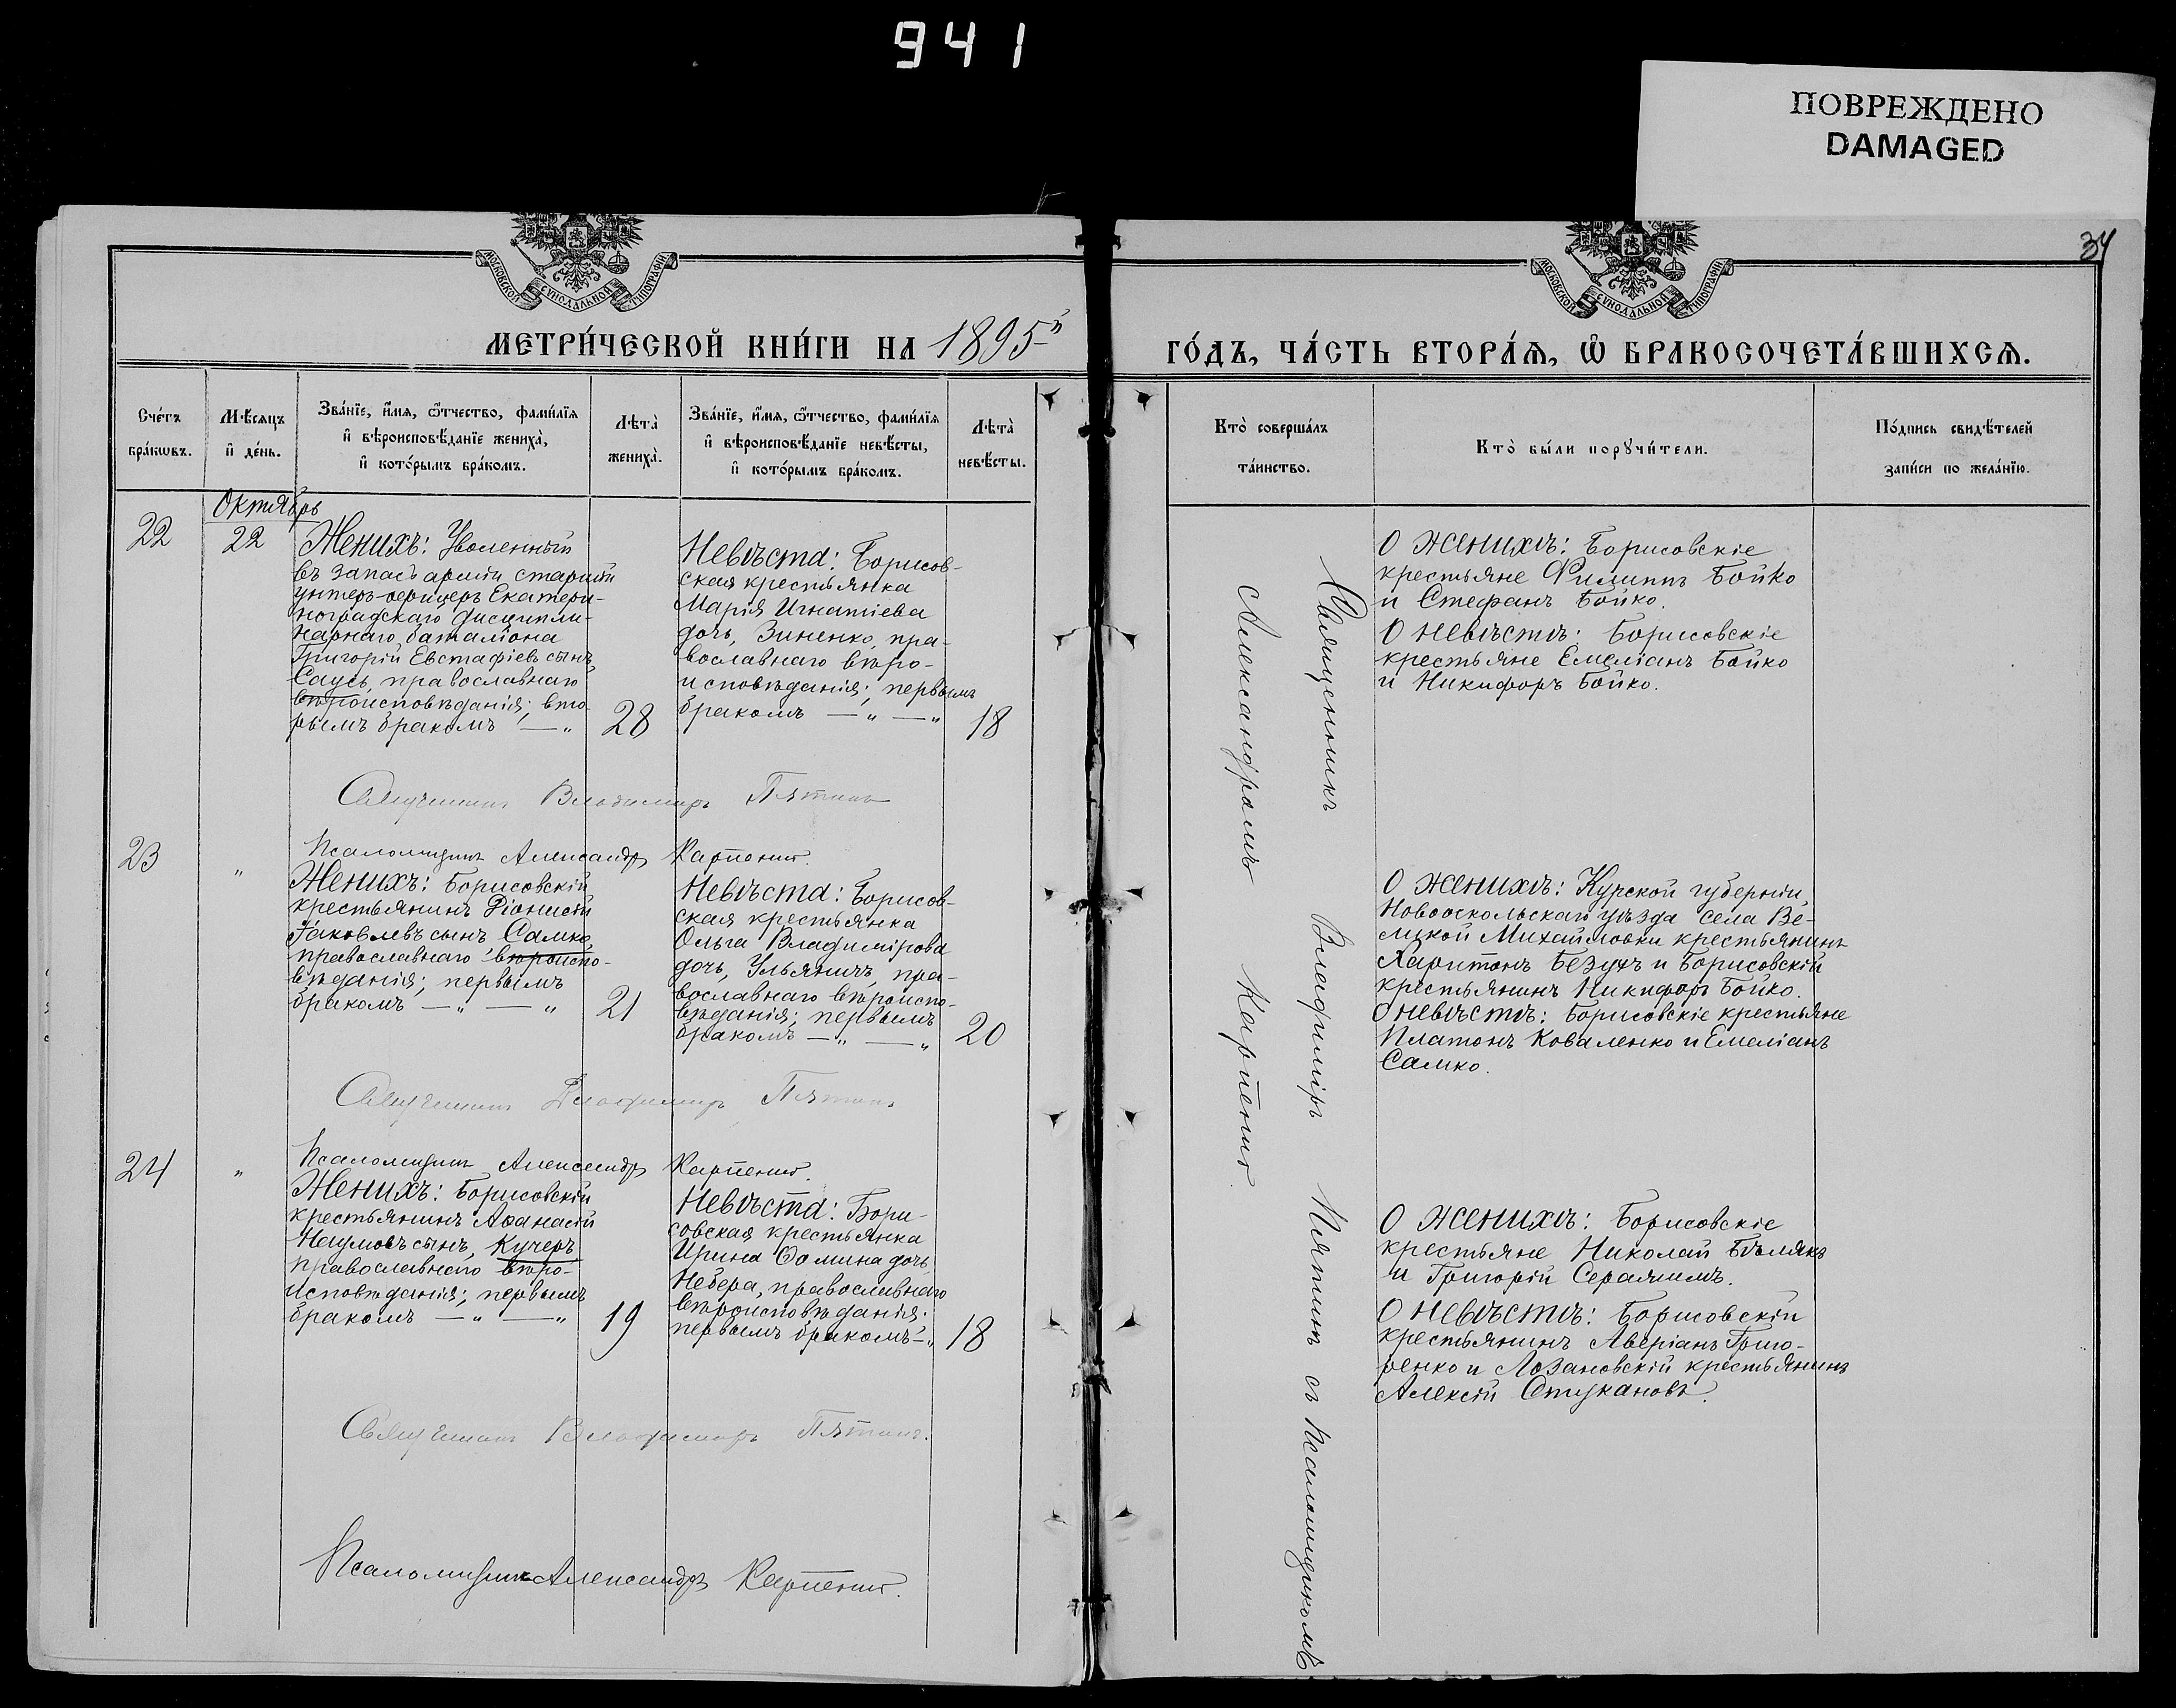 941
ПОВРЕЖДЕНО
DAMAGED
34
МОСКОВСКОЙ СѴНОДАЛЬНОЙ ТИПОГРАФІИ
МОСКОВСКОЙ СѴНОДАЛЬНОЙ ТИПОГРАФІИ
МЕТРИ́ЧЕСКОЙ КНИ́ГИ НА 1895й
ГО́ДЪ, ЧА́СТЬ ВТОРА́Ѧ, Ѽ БРАКОСОЧЕТА́ВШИХСѦ.
Сче́тъ
бра́кѡвъ.
Мѣ́сѧцъ
и҆ де́нь.
Зва́нїе, и҆́мѧ, ѻ҆́тчество, фами́лїѧ
и҆ вѣроисповѣ́данїе жениха̀,
и҆ кото́рымъ бра́комъ.
Лѣта̀
жениха̀.
Зва́нїе, и҆́мѧ, ѻ҆́тчество, фами́лїѧ
и҆ вѣроисповѣ́данїе невѣ́сты,
и҆ кото́рымъ бра́комъ.
Лѣта̀
невѣ́сты.
Кто̀ соверша́лъ
та́инство.
Кто̀ бы́ли порꙋчи́тели.
По́дпись свидѣ́телей
за́писи по жела́нїю.
Октябрь
22
22
Женихъ: Уволенный
въ запасъ арміи старшій
унтеръ-офицеръ Екатери-
ноградскаго дисципли-
нарнаго баталіона
Григорій Евстафіевъ сынъ
Саусь, православнаго
вѣроисповѣданія; вто-
рымъ бракомъ — „
28
Невѣста: Борисов-
ская крестьянка
Марія Игнатіева
дочь, Зиненко, пра-
вославнаго вѣро-
исповѣданія; первымъ
бракомъ — „ — „
18
О женихѣ: Борисовскіе
крестьяне Филиппъ Бойко
и Стефанъ Бойко.
О невѣстѣ: Борисовскіе
крестьяне Емеліанъ Бойко
и Никифоръ Бойко.
Священникъ Владимиръ Пятинъ
Псаломщикъ Александръ Карпенко.
23
„
Женихъ: Борисовскій
крестьянинъ Діонисій
Іаковлевъ сынъ Самко,
православнаго вѣроиспо-
вѣданія; первымъ
бракомъ — „ — „
21
Невѣста: Борисов-
ская крестьянка
Ольга Владимірова
дочь, Ульяничъ, пра-
вославнаго вѣроиспо-
вѣданія; первымъ
бракомъ — „ — „
20
О женихѣ: Курской губерніи,
Новооскольскаго уѣзда села Ве-
ликой Михайловки крестьянинъ
Харитонъ Безухъ и Борисовскій
крестьянинъ Никифоръ Бойко.
О невѣстѣ: Борисовскіе крестьяне
Платонъ Коваленко и Емеліанъ
Самко.
Священникъ Владимиръ Пятинъ
Псаломщикъ Александръ Карпенко.
24
„
Женихъ: Борисовскій
крестьянинъ Аѳанасій
Наумовъ сынъ, Кучеръ
православнаго вѣро-
исповѣданія; первымъ
бракомъ — „ — „
19
Невѣста: Бори-
совская крестьянка
Ирина Ѳомина дочь
Небера, православнаго
вѣроисповѣданія;
первымъ бракомъ — „
18
О женихѣ: Борисовскіе
крестьяне Николай Бѣлякъ
и Григорій Серачимъ.
О невѣстѣ: Борисовскій
крестьянинъ Аверіанъ Григо-
ренко и Лозановскій крестьянинъ
Алексій Стукановъ.
Священникъ Владимиръ Пятинъ.
Псаломщикъ Александръ Карпенко.
Священникъ Владиміръ Пятинъ съ Псаломщикомъ
Александромъ Карпенко.